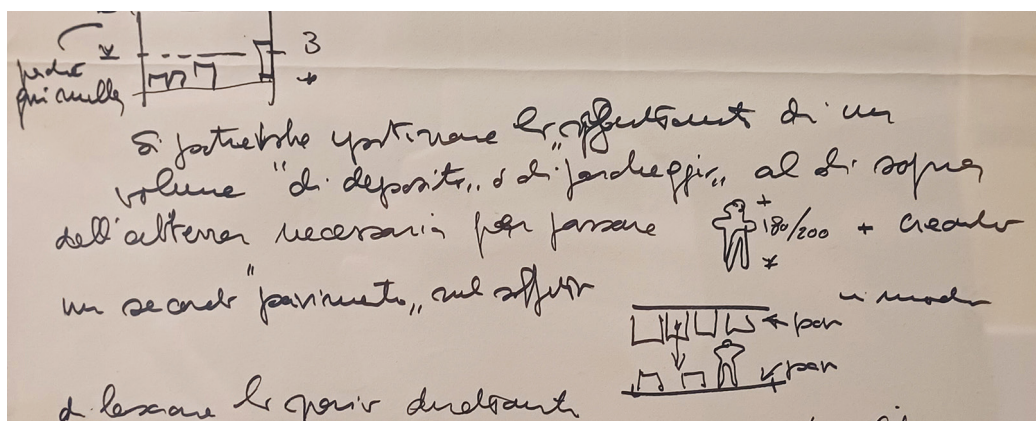 3
qui nulla
Si potrebbe ipotizzare lo "sfruttamento" di un
volume "di deposito" o di parcheggio" al di sopra
dell'altezza necessaria per passare 180/200 + creando
un secondo "pavimento" sul soffitto in modo
pav
pav
di lasciare lo spazio